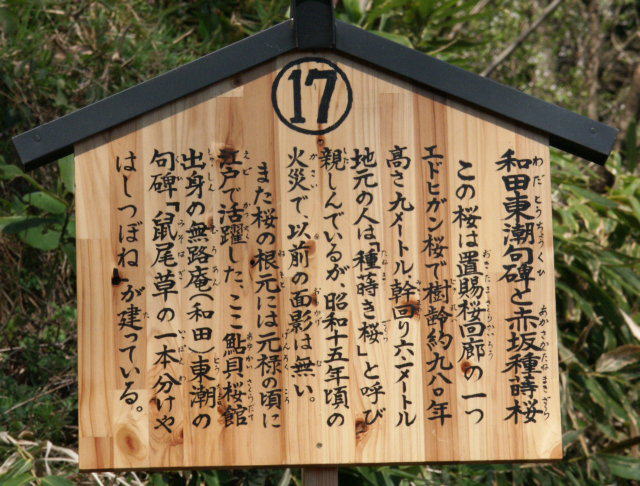 17
和田東潮句碑と赤坂種蒔桜
この桜は置賜桜回廊の一つ
エドヒガン桜で樹齢約九八〇年
高さ九メートル、幹回り六一メートル
地元の人は「種蒔き桜」と呼び
親しんでいるが、昭和十五年頃の
火災で、以前の面影は無い。
また桜の根元には元禄の頃に
江戸で活躍した、ここ鮎貝桜館
出身の無路庵(和田)東潮の
句碑「鼠尾草の一本分けや
はしつぼね」が建っている。